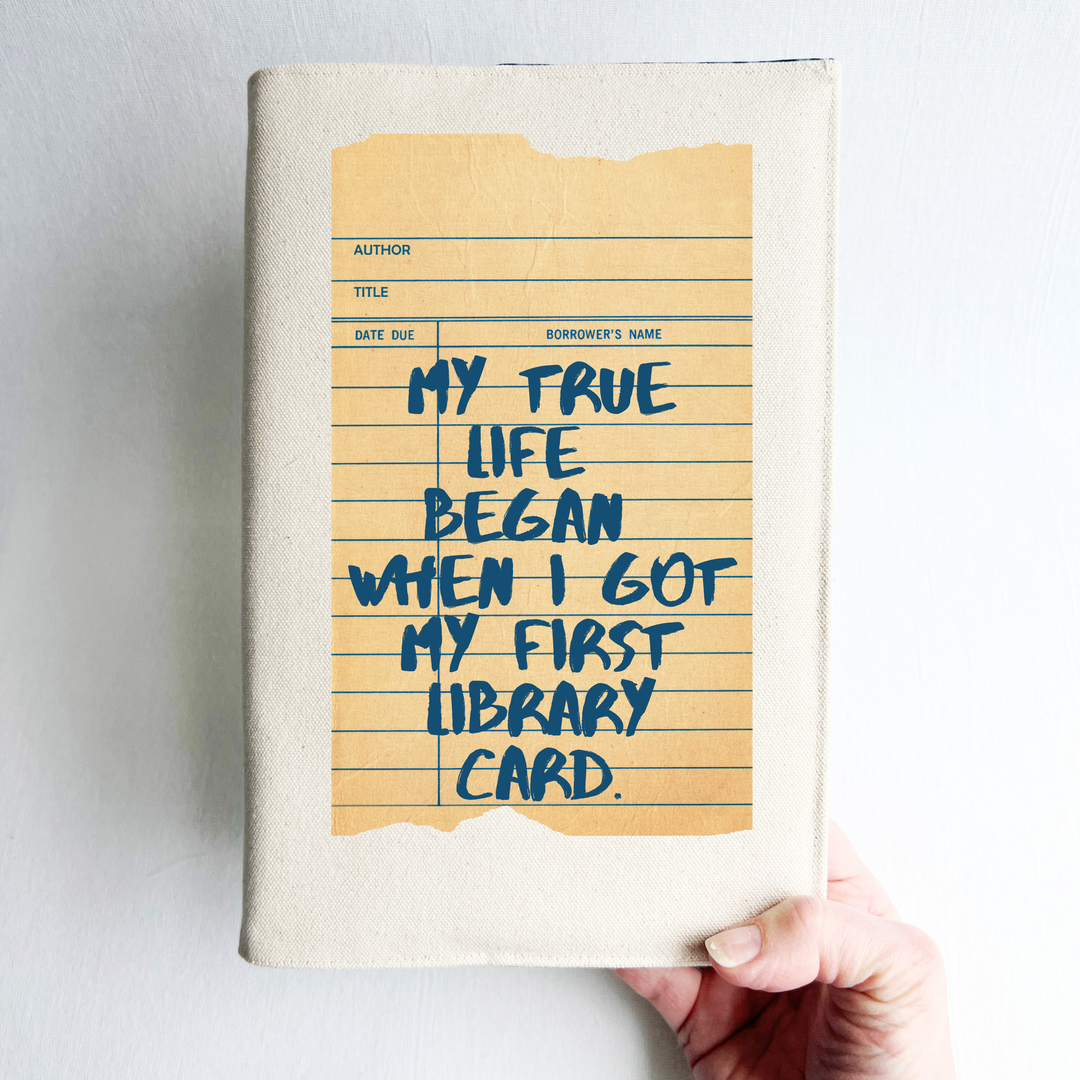 AUTHOR
TITLE
DATE DUE BORROWER'S NAME
MY TRUE
LIFE
BEGAN
WHEN I GOT
MY FIRST
LIBRARY
CARD.